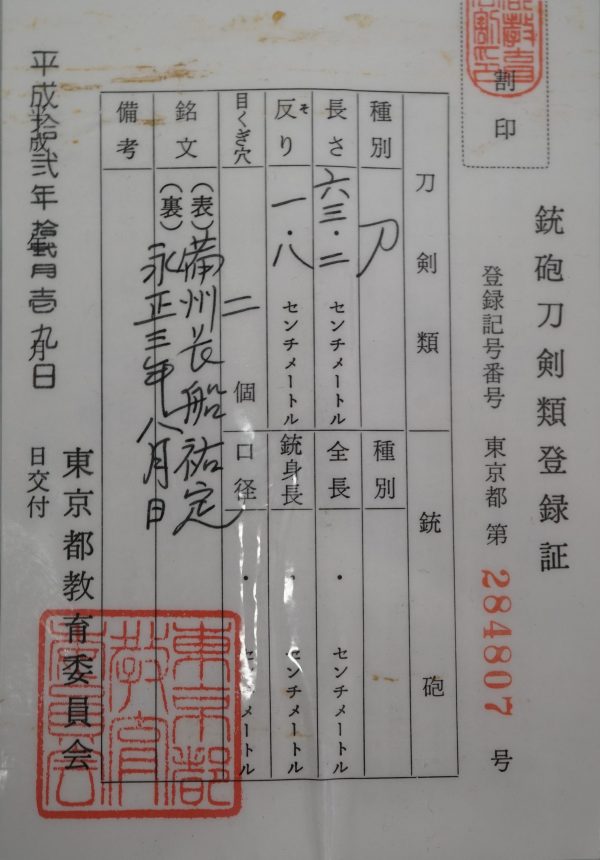 割印
銃砲刀剣類登録証
登録記号番号 東京都 第 284807 号
刀剣類
種別 刀
長さ 六三・二 センチメートル
反り そ 一・八 センチメートル
目くぎ穴 二 個
銘文 (表) 備州長船祐定
(裏) 永正三年八月日
備考
銃砲
種別
全長 ・ センチメートル
銃身長 ・ センチメートル
口径 ・ センチメートル
平成 拾弐年
日交付
東京都教育委員会
東京都教育委員会